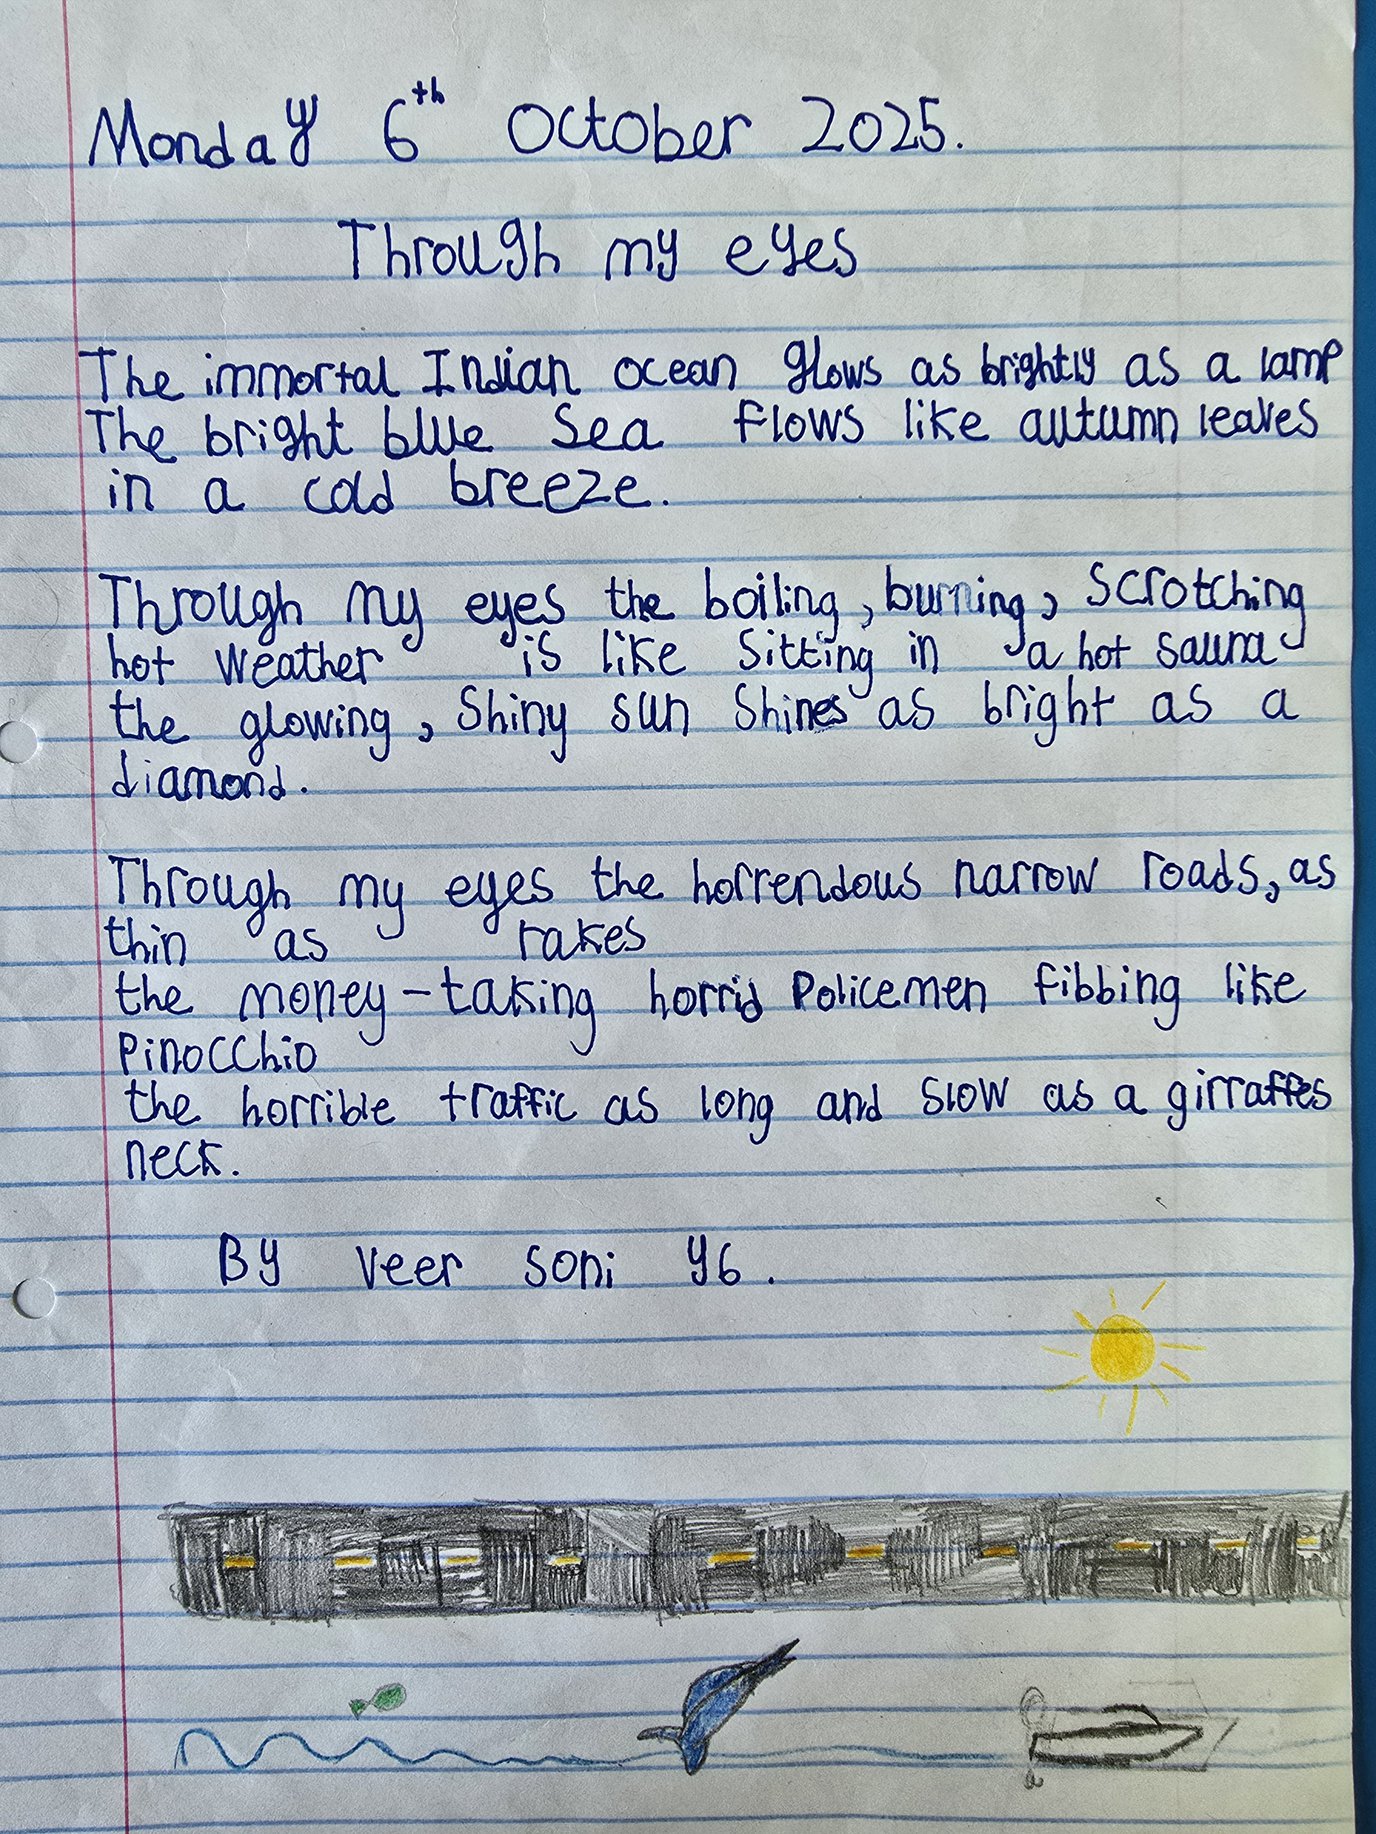 Monday 6th October 2025.
Through my eyes
The immortal Indian ocean glows as brightly as a lamp
The bright blue Sea flows like autumn leaves
in a cold breeze.
Through my eyes the boiling, burning, scrotching
hot weather is like sitting in a hot sauna
the glowing, Shiny sun Shines as bright as a
diamond.
Through my eyes the horrendous narrow roads, as
thin as rakes
the money-taking horrid Policemen fibbing like
Pinocchio
the horrible traffic as long and slow as a girraffes
neck.
By Veer Soni Y6.